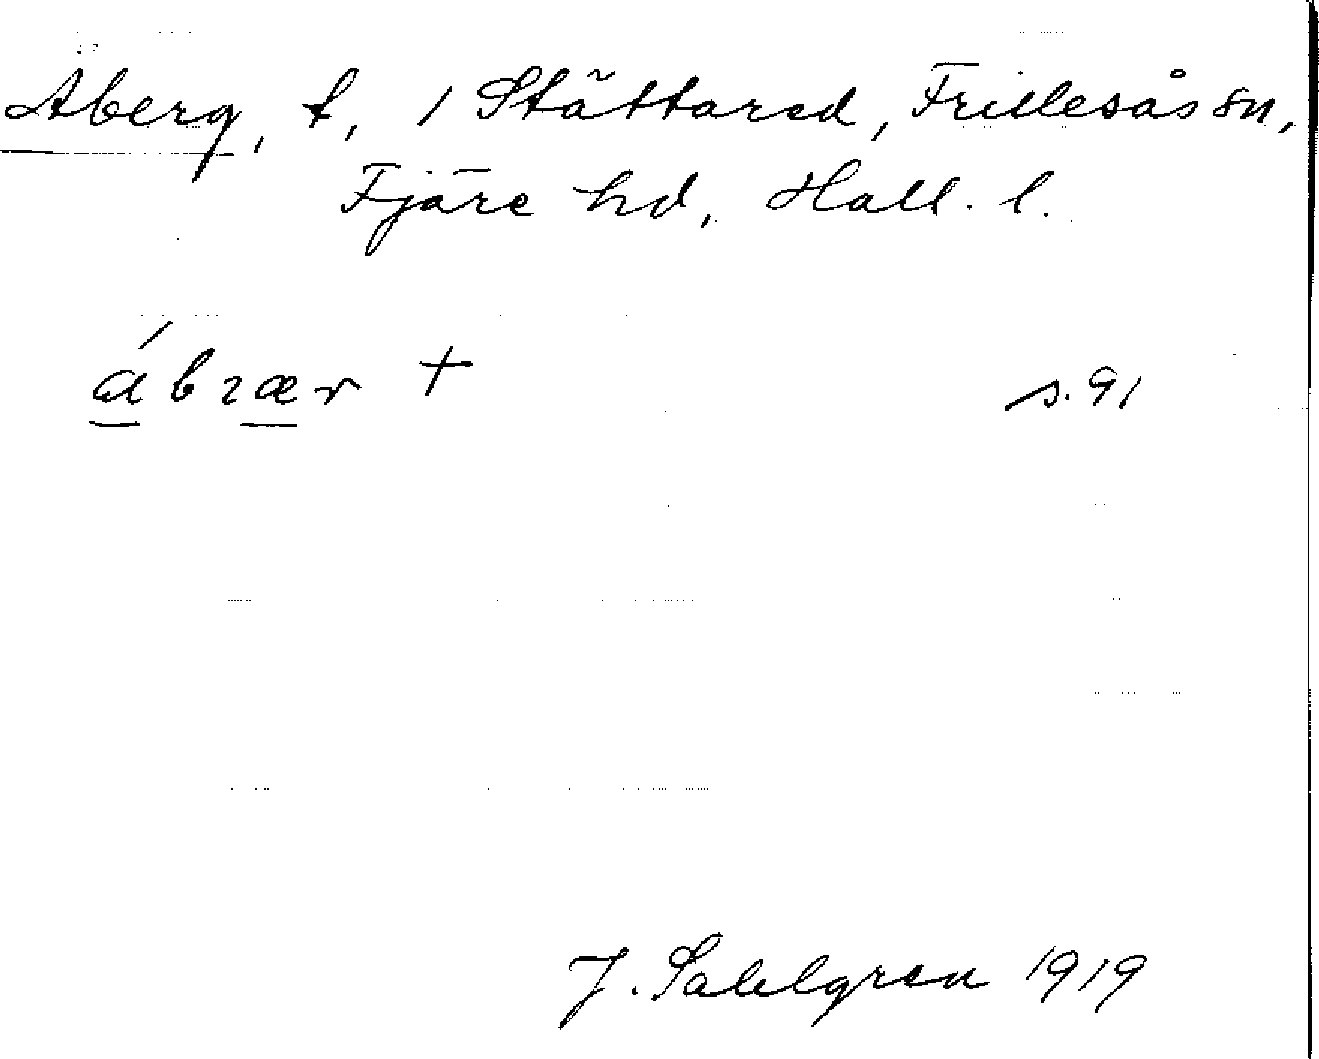 Åberg, t, 1 Stättared, Frillesås sn,
Fjäre hd, Hall. l.
ábrær + s. 91
J. Sahlgren 1919